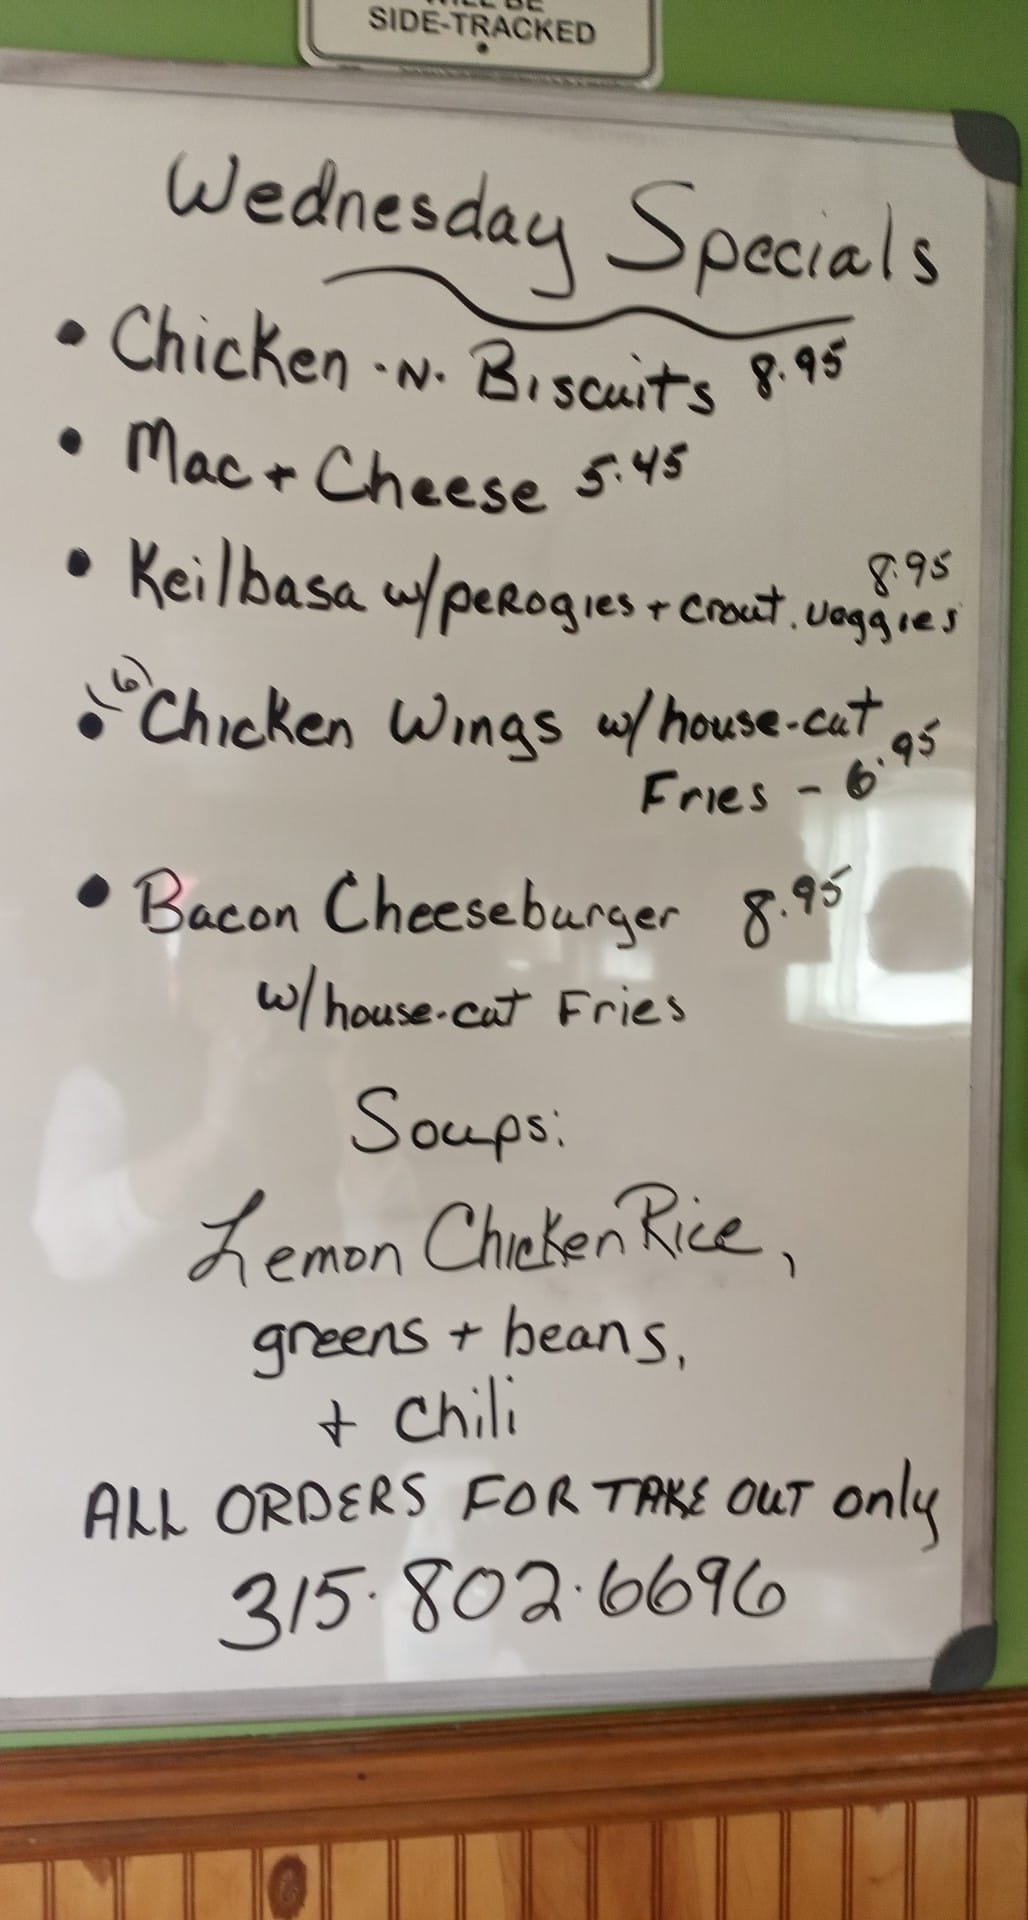 SIDE-TRACKED
Wednesday Specials
• Chicken -N- Biscuits 8.95
• Mac + Cheese 5.45
• Keilbasa w/peRogies + crout. veggies 8.95
• (6) Chicken Wings w/house-cut
Fries - 6.95
• Bacon Cheeseburger 8.95
w/house-cut Fries
Soups:
Lemon Chicken Rice,
greens + beans,
+ Chili
ALL ORDERS FOR TAKE OUT only
315.802.6696